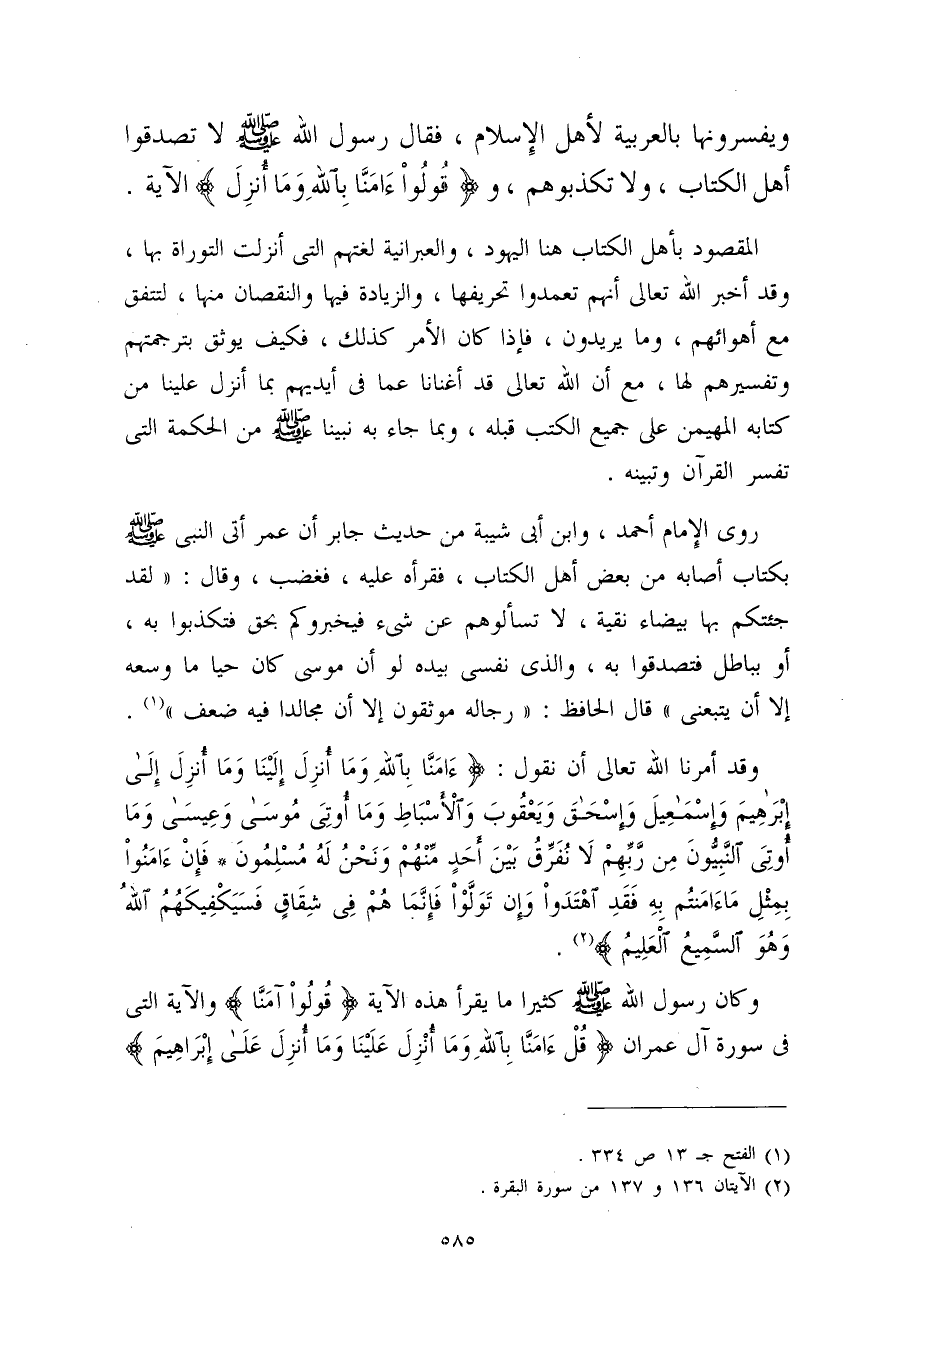 ويفسرونها بالعربية لأهل الإسلام ، فقال رسول الله ﷺ لا تصدقوا
أهل الكتاب ، ولا تكذبوهم ، و ﴿ قُولُوا۟ ءَامَنَّا بِٱللَّهِ وَمَا أُنزِلَ ﴾ الآية .
المقصود بأهل الكتاب هنا اليهود ، والعبرانية لغتهم التى أنزلت التوراة بها ،
وقد أخبر الله تعالى أنهم تعمدوا تحريفها ، والزيادة فيها والنقصان منها ، لتتفق
مع أهوائهم ، وما يريدون ، فإذا كان الأمر كذلك ، فكيف يوثق بترجمتهم
وتفسيرهم لها ، مع أن الله تعالى قد أغنانا عما فى أيديهم بما أنزل علينا من
كتابه المهيمن على جميع الكتب قبله ، وبما جاء به نبينا ﷺ من الحكمة التى
تفسر القرآن وتبينه .
روى الإمام أحمد ، وابن أبى شيبة من حديث جابر أن عمر أتى النبى ﷺ
بكتاب أصابه من بعض أهل الكتاب ، فقرأه عليه ، فغضب ، وقال : « لقد
جئتكم بها بيضاء نقية ، لا تسألوهم عن شىء فيخبروكم بحق فتكذبوا به ،
أو بباطل فتصدقوا به ، والذى نفسى بيده لو أن موسى كان حيا ما وسعه
إلا أن يتبعنى » قال الحافظ : « رجاله موثقون إلا أن مجالدا فيه ضعف »(١) .
وقد أمرنا الله تعالى أن نقول : ﴿ ءَامَنَّا بِٱللَّهِ وَمَا أُنزِلَ إِلَيْنَا وَمَا أُنزِلَ إِلَىٰ
إِبْرَٰهِيمَ وَإِسْمَـٰعِيلَ وَإِسْحَـٰقَ وَيَعْقُوبَ وَٱلْأَسْبَاطِ وَمَا أُوتِىَ مُوسَىٰ وَعِيسَىٰ وَمَا
أُوتِىَ ٱلنَّبِيُّونَ مِن رَّبِّهِمْ لَا نُفَرِّقُ بَيْنَ أَحَدٍ مِّنْهُمْ وَنَحْنُ لَهُ مُسْلِمُونَ * فَإِنْ ءَامَنُوا۟
بِمِثْلِ مَاءَامَنتُم بِهِ فَقَدِ ٱهْتَدَوا۟ وَإِن تَوَلَّوْا۟ فَإِنَّمَا هُمْ فِى شِقَاقٍ فَسَيَكْفِيكَهُمُ ٱللَّهُ
وَهُوَ ٱلسَّمِيعُ ٱلْعَلِيمُ ﴾(٢) .
وكان رسول الله ﷺ كثيرا ما يقرأ هذه الآية ﴿ قُولُوا۟ آمَنَّا ﴾ والآية التى
فى سورة آل عمران ﴿ قُلْ ءَامَنَّا بِٱللَّهِ وَمَا أُنْزِلَ عَلَيْنَا وَمَا أُنزِلَ عَلَىٰ إِبْرَاهِيمَ ﴾
(١) الفتح جـ ١٣ ص ٣٣٤ .
(٢) الآيتان ١٣٦ و ١٣٧ من سورة البقرة .
٥٨٥